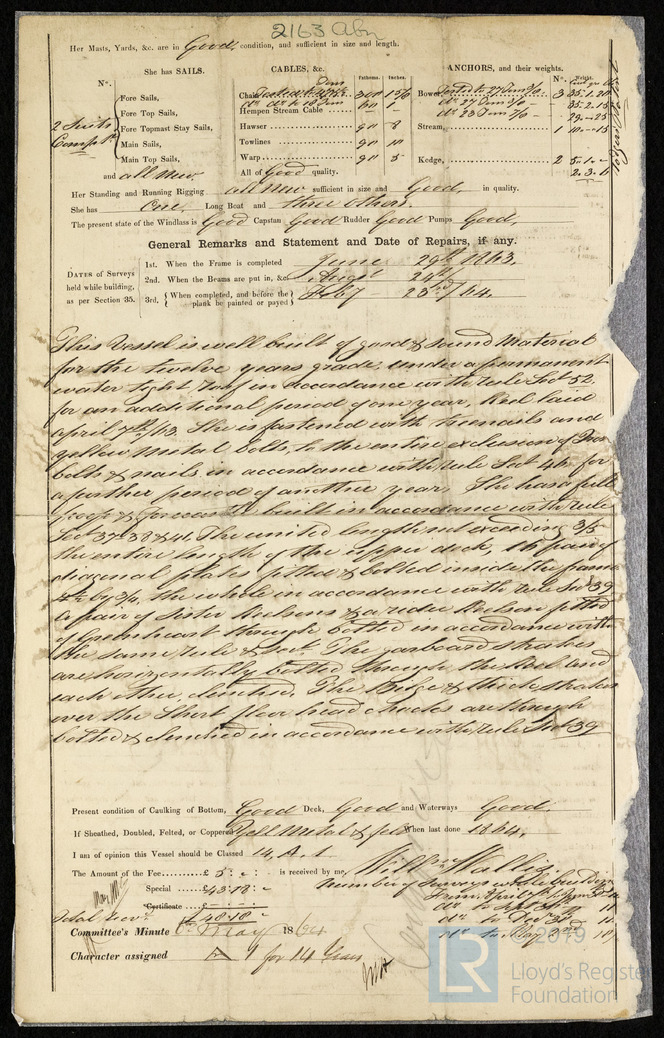 2163 Abn
Her Masts, Yards, &c. are in Good condition, and sufficient in size and length.
She has SAILS.
N°.
Fore Sails,
Fore Top Sails,
2 Suits
Fore Topmast Stay Sails,
Compt.
Main Sails,
Main Top Sails,
and all new
CABLES, &c.
Fathoms. Inches.
Chain
300 1 5/8
Hempen Stream Cable
Hawser 90 8
Towlines 90 10
Warp 90 5
All of Good quality.
ANCHORS, and their weights.
N°. Weight.
Bowers 3 35.1.20
35.2.18
Stream, 1
Kedge, 2 5.1.-
2.3.
Her Standing and Running Rigging all new sufficient in size and Good, in quality.
She has One Long Boat and three others.
The present state of the Windlass is Good Capstan Good Rudder Good Pumps Good,
General Remarks and Statement and Date of Repairs, if any.
DATES of Surveys held while building, as per Section 35.
1st. When the Frame is completed June 29th 1863.
2nd. When the Beams are put in, &c. Augst 24th
3rd. { When completed, and before the plank be painted or payed } Feby 23rd /64.
This Vessel is well built of good & sound Material
for the twelve years grade, under a permanent
water tight roof in accordance with rule Sect 52
for an additional period of one year, Keel laid
april 7th /63. She is fastened with treenails and
yellow Metal bolts, to the entire exclusion of Iron
bolts & nails in accordance with rule Sect 46 for
a further period of another year, She has a full
poop & forecastle built in accordance with rule
Sect 37 38 & 41. The united length not exceeding 3/5
the entire length of the upper deck, 16 pair of
diagonal plates fitted & bolted inside the frame
by 3/4, the whole in accordance with rule Sect 39
a pair of Sister Keelsons & a rider Keelson fitted
of Greenheart through bolted in accordance with
the same rule & Sect. The garboard strakes
are horizontally bolted through the Keel and
each other clenched. The Bilge & thick strakes
over the Short floor head chocks are through
bolted & clenched in accordance with rule Sect 39
Present condition of Caulking of Bottom, Good Deck, Good and Waterways Good.
If Sheathed, Doubled, Felted, or Coppered Yell Metal & felt When last done 1864.
I am of opinion this Vessel should be Classed 14, A, 1
The Amount of the Fee......£ 5 : " : - is received by me, Willm Wallis
Special ......£ 43.18 : -
Number of Surveys while building
Certificate
£ 48.18 : -
Committee's Minute 6th May 1864
Character assigned A 1 for 14 Years
© 2019
LR
Lloyd's Register
Foundation